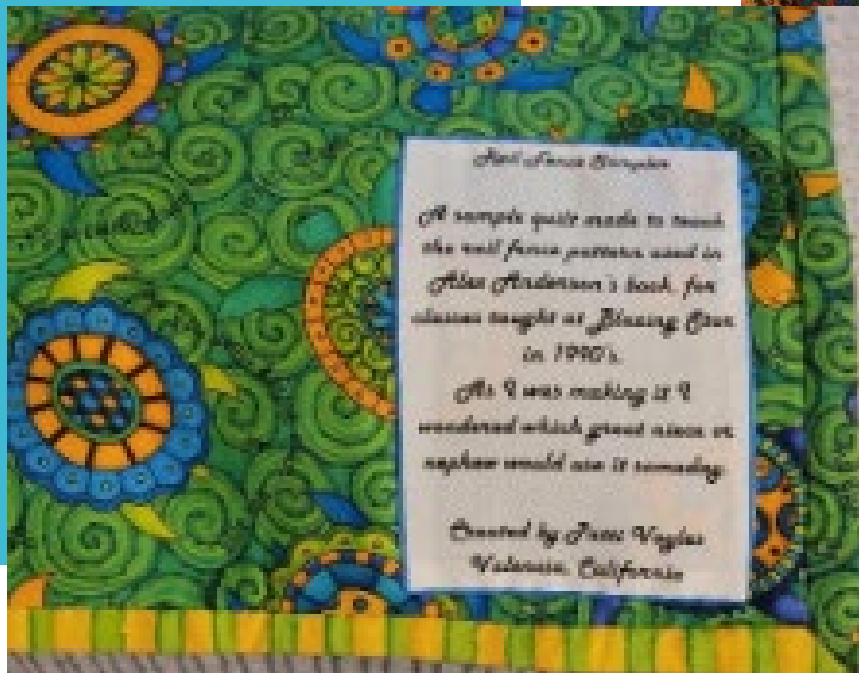 Rail Fence Sampler
A sample quilt made to teach
the rail fence pattern used in
Alex Anderson's book, for
classes taught at Blazing Star
in 1990's.
As I was making it I
wondered which great niece or
nephew would use it someday.
Created by Patti
Valencia, California